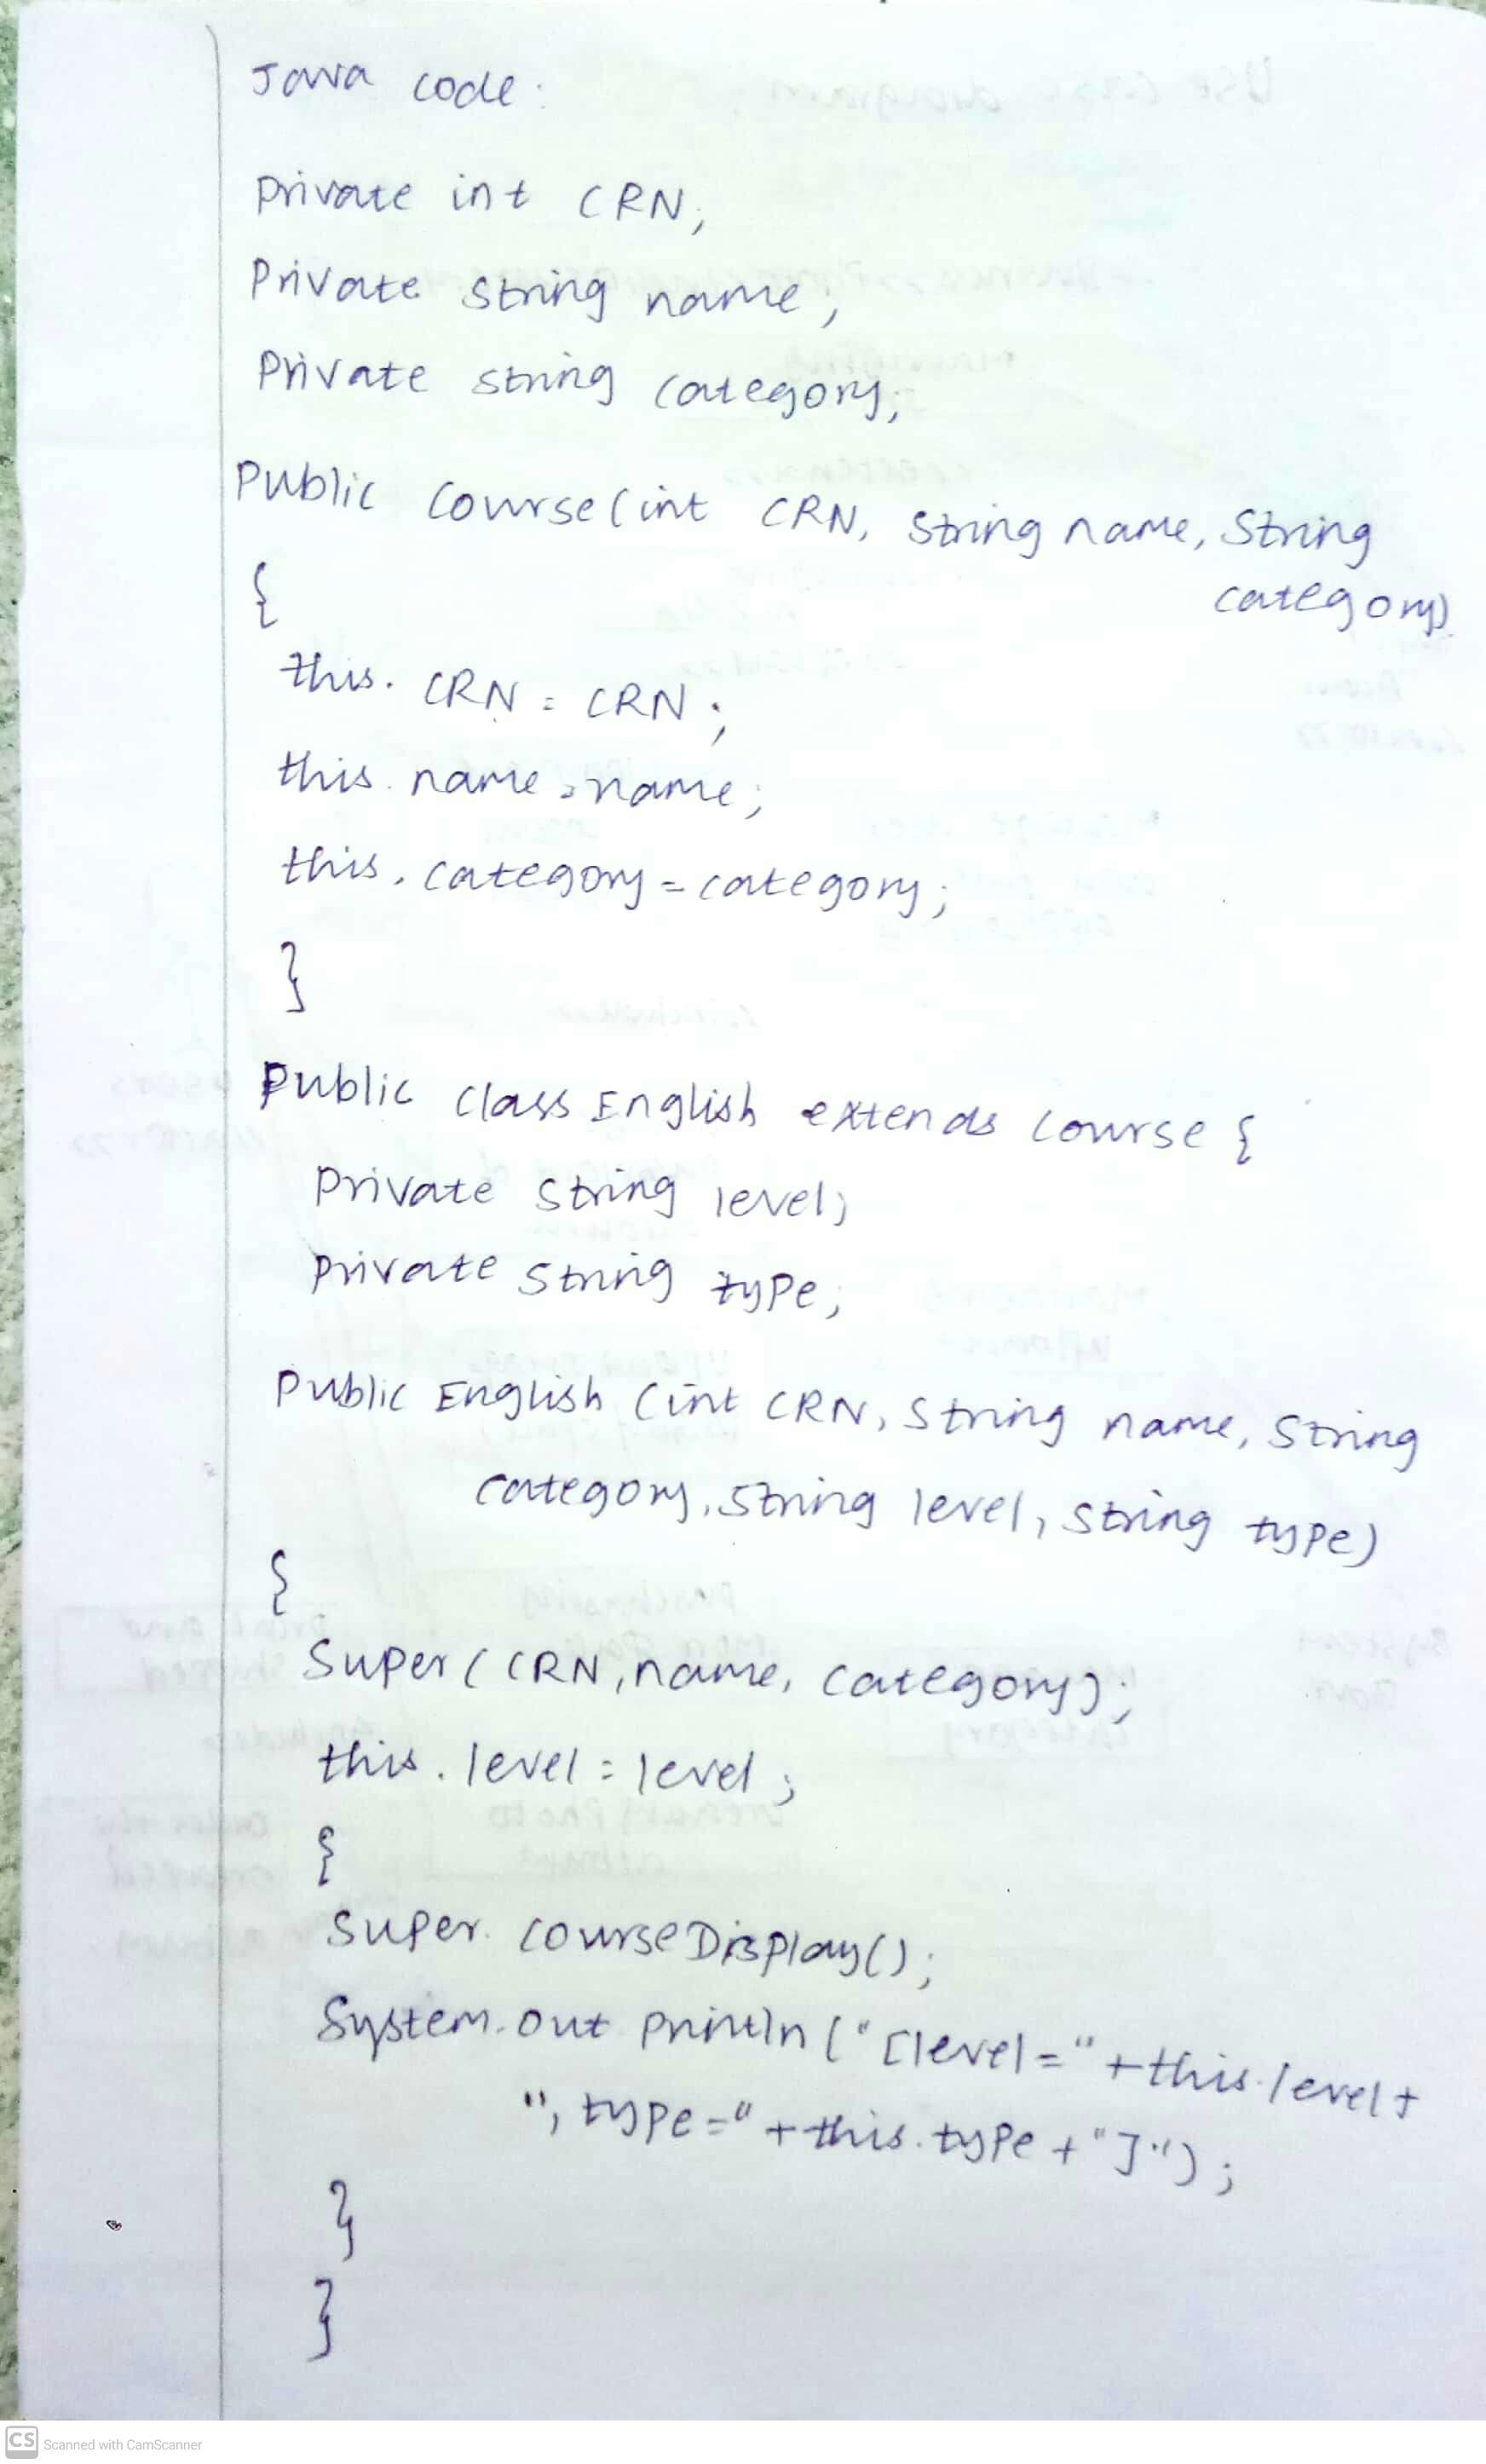 Java code:
Private int CRN;
Private String name;
Private string category;
Public Course(int CRN, String name, String
category)
{
this. CRN = CRN;
this. name = name;
this. category = category;
}
Public class English extends Course {
Private String level;
Private String type;
Public English (int CRN, String name, String
category, String level, String type)
{
Super( CRN, name, category);
this. level = level;
{
Super. CourseDisplay();
System.out println ("[level=" + this.level +
", type=" + this.type + "]");
}
}
CS Scanned with CamScanner